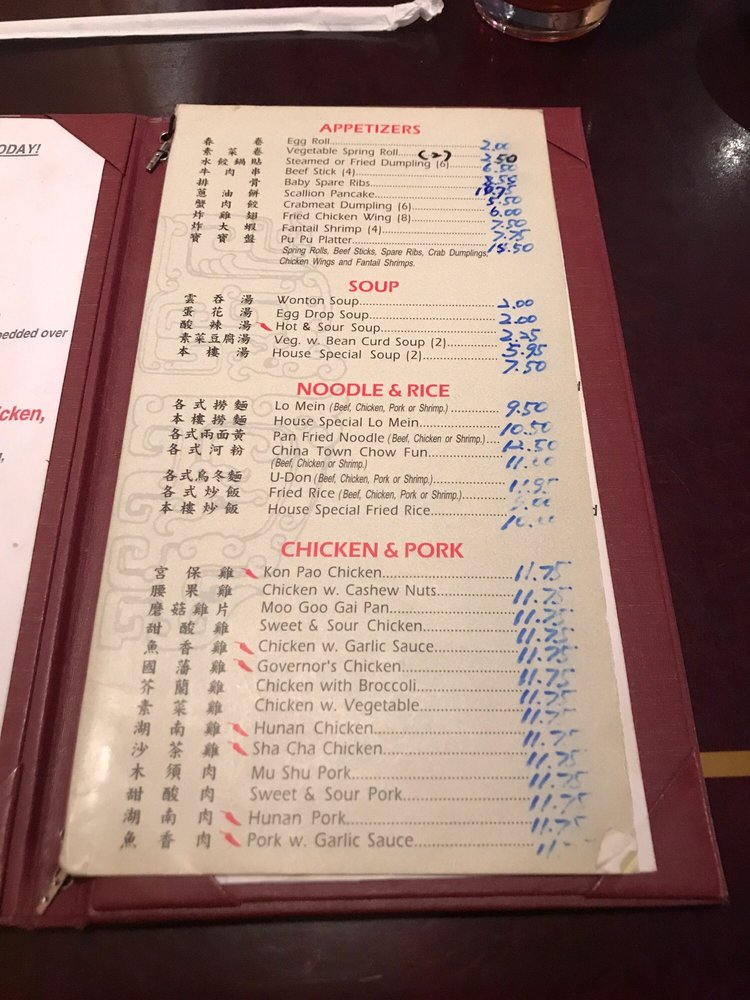 ODAY!
bedded over
icken,
APPETIZERS
春 卷 Egg Roll 2.00
素 菜 卷 Vegetable Spring Roll (2) 2.50
水餃鍋貼 Steamed or Fried Dumpling (6) 6.50
牛 肉 串 Beef Stick (4) 8.50
排 骨 Baby Spare Ribs 10.75
蔥 油 餅 Scallion Pancake 5.50
蟹 肉 餃 Crabmeat Dumpling (6) 6.00
炸 雞 翅 Fried Chicken Wing (8) 7.50
炸 大 蝦 Fantail Shrimp (4) 7.75
寶 寶 盤 Pu Pu Platter 15.50
Spring Rolls, Beef Sticks, Spare Ribs, Crab Dumplings,
Chicken Wings and Fantail Shrimps.
SOUP
雲 吞 湯 Wonton Soup 2.00
蛋 花 湯 Egg Drop Soup 2.00
酸 辣 湯 Hot & Sour Soup 2.25
素菜豆腐湯 Veg. w. Bean Curd Soup (2) 5.95
本 樓 湯 House Special Soup (2) 7.50
NOODLE & RICE
各 式 撈 麵 Lo Mein (Beef, Chicken, Pork or Shrimp.) 9.50
本 樓 撈 麵 House Special Lo Mein 10.50
各式兩面黃 Pan Fried Noodle (Beef, Chicken or Shrimp.) 12.50
各 式 河 粉 China Town Chow Fun
(Beef, Chicken or Shrimp.)
各式烏冬麵 U-Don (Beef, Chicken, Pork or Shrimp.) 11.95
各 式 炒 飯 Fried Rice (Beef, Chicken, Pork or Shrimp.)
本 樓 炒 飯 House Special Fried Rice
CHICKEN & PORK
宮 保 雞 Kon Pao Chicken 11.75
腰 果 雞 Chicken w. Cashew Nuts 11.75
磨 菇 雞 片 Moo Goo Gai Pan 11.75
甜 酸 雞 Sweet & Sour Chicken 11.75
魚 香 雞 Chicken w. Garlic Sauce 11.75
國 藩 雞 Governor's Chicken 11.75
芥 蘭 雞 Chicken with Broccoli 11.75
素 菜 雞 Chicken w. Vegetable 11.75
湖 南 雞 Hunan Chicken 11.75
沙 茶 雞 Sha Cha Chicken 11.75
木 須 肉 Mu Shu Pork 11.75
甜 酸 肉 Sweet & Sour Pork 11.75
湖 南 肉 Hunan Pork 11.75
魚 香 肉 Pork w. Garlic Sauce